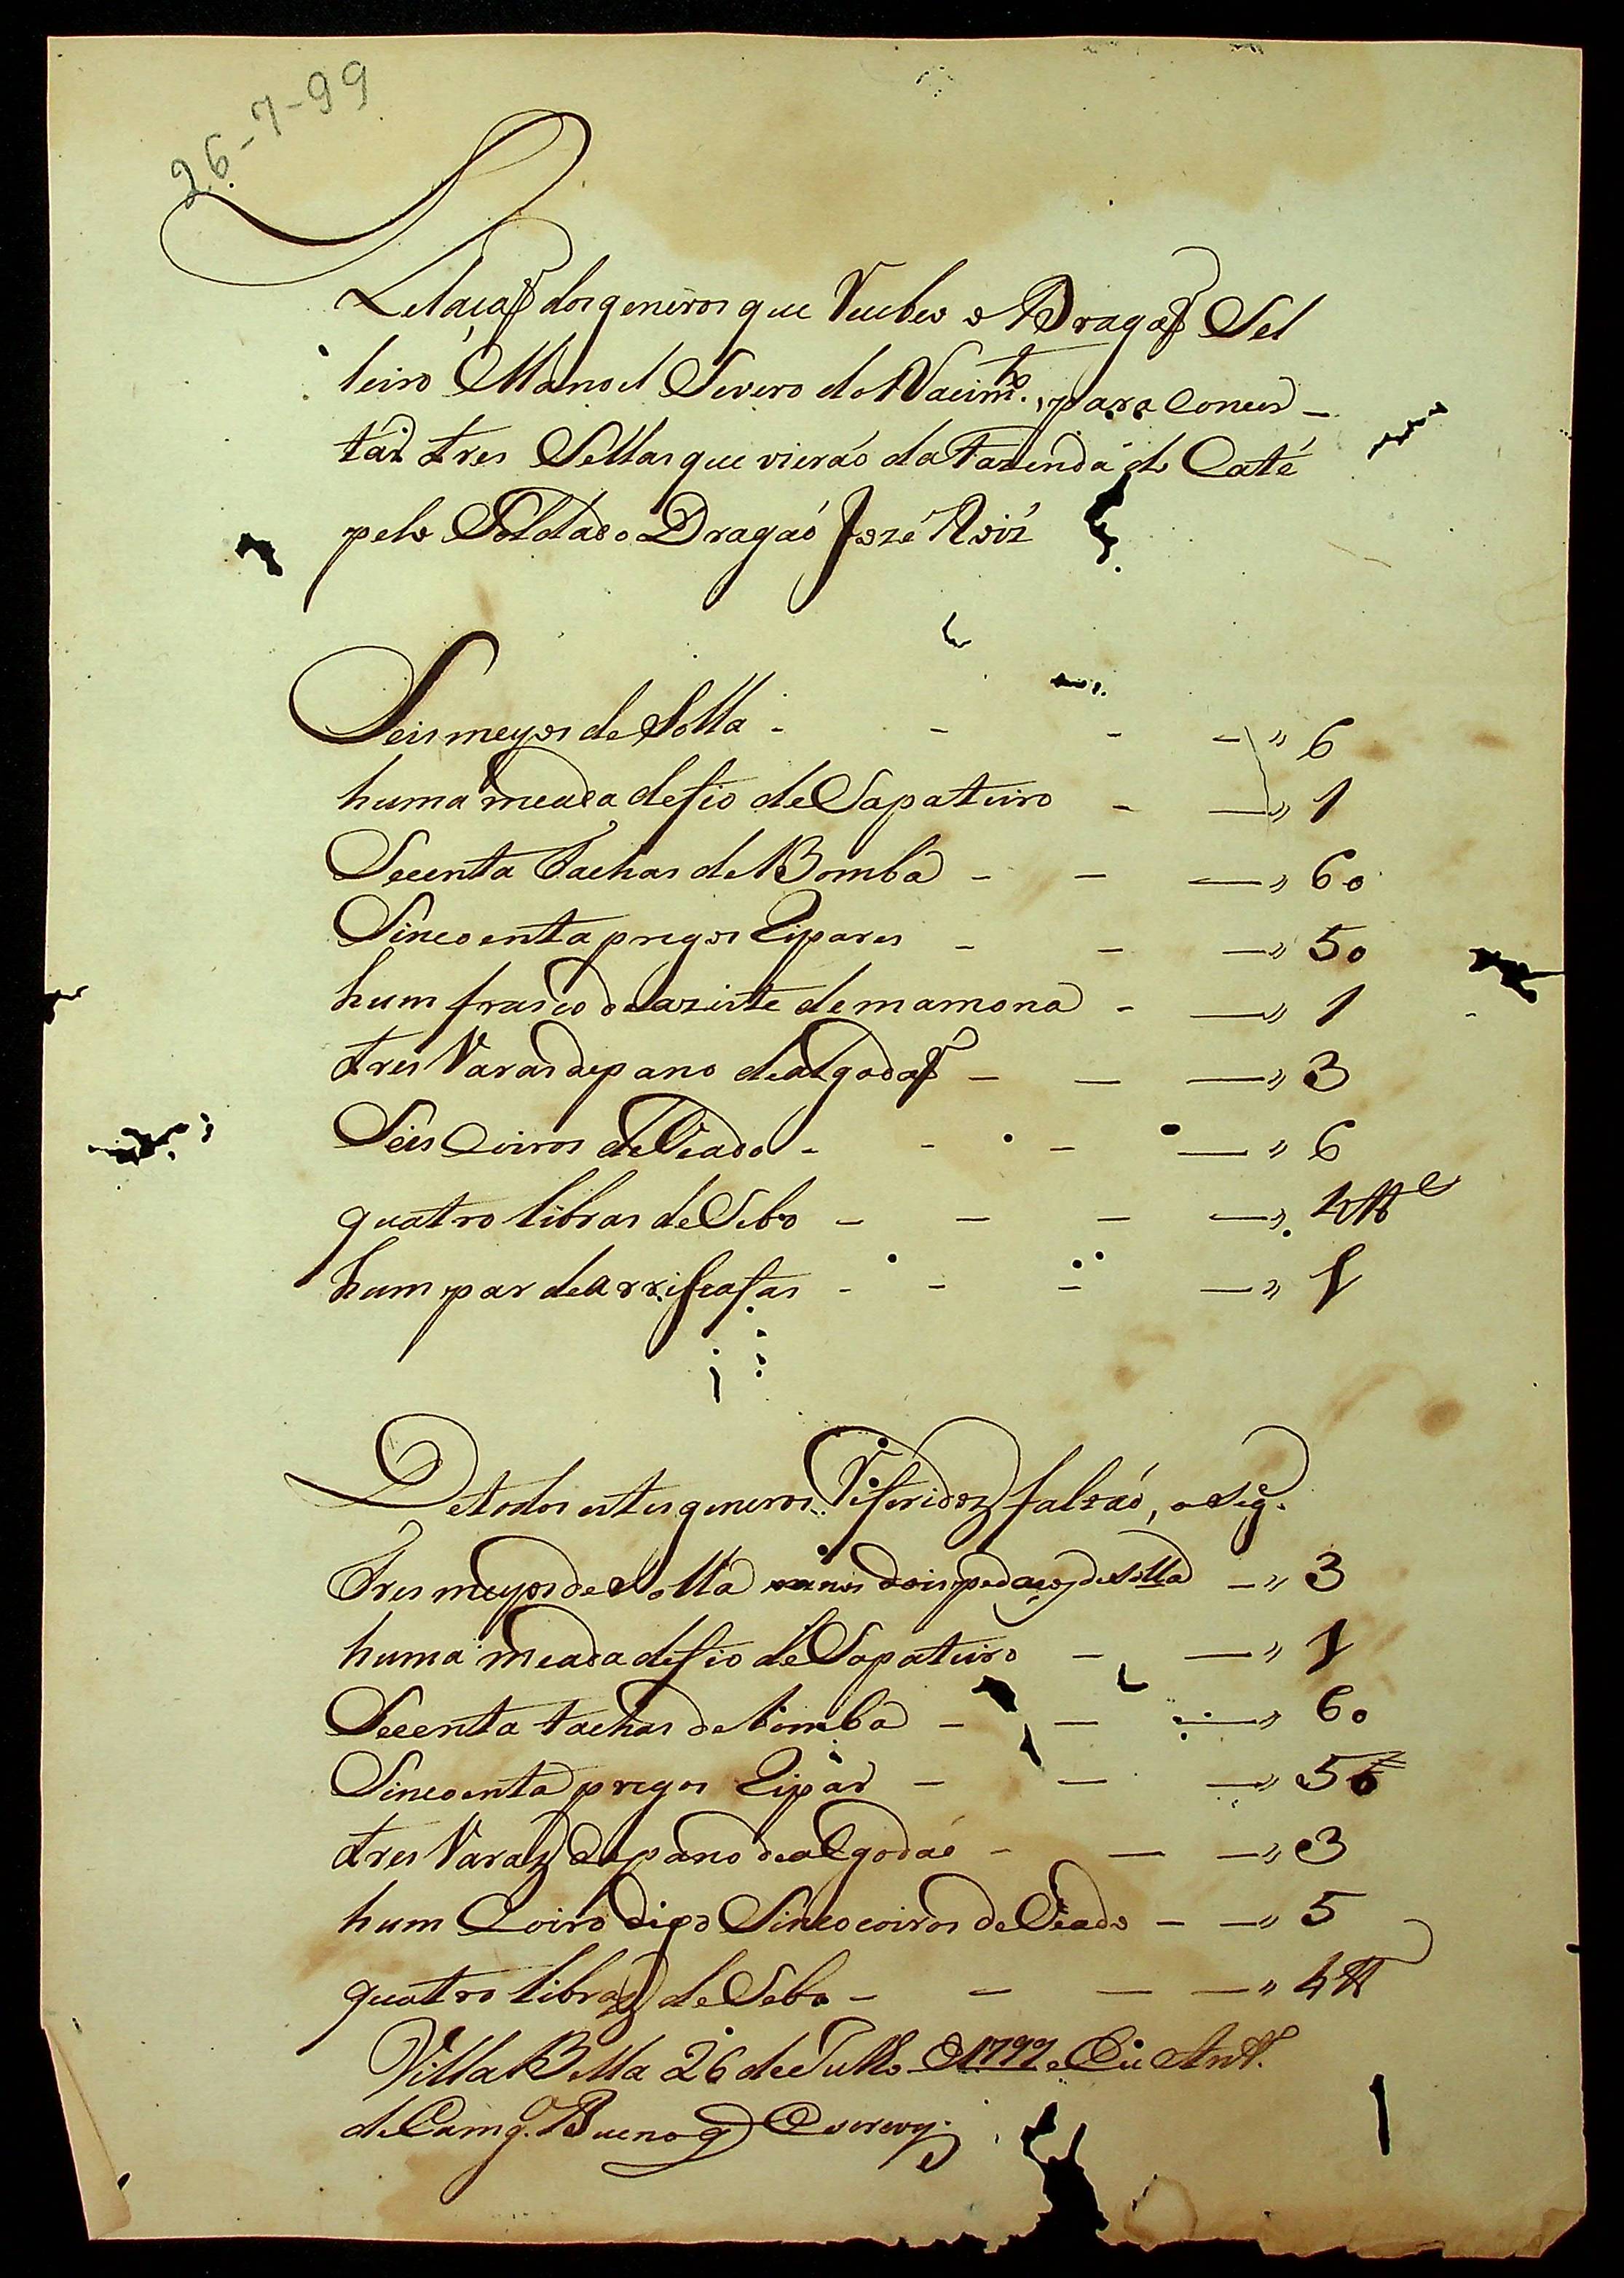 26-7-99
Relaçaõ dos generos que Recebeo o Dragaõ Sel
leiro Manoel Severo do Nacim.to, para Concer-
tár tres Sellas que vieraó da Fazenda do Caté
pelo Soldado Dragaó Jozé Roiz
Seis meyos de Solla - - - - " 6
huma meada de fio de Sapateiro - - " 1
Secenta tachas de Bomba - - - " 60
Sincoenta pregos Ripares - - - " 50
hum frasco de azeite de mamona - - " 1
tres Varas de pano de algodaõ - - - " 3
Seis Coiros de Veado - - - - " 6
quatro libras de Sebo - - - - " 4 lb
hum par de arrifeafas - - - - " 1
De todos estes generos Referidoz falraó, o seg.e
Tres meyos de Solla menos dois pedaços de Solla - " 3
huma meada de fio de Sapateiro - - " 1
Secenta tachas de bomba - - - " 60
Sincoenta pregos Ripar - - - " 50
tres Varaz de pano de algodaó - - - " 3
hum Coiro digo Sinco coiros de Veado - - " 5
quatro libraz de Sebo - - - - " 4 lb
Villa Bella 26 de Julho de 1799 e Eu Ant.º
de Camg.º Bueno q̃ Escrevy